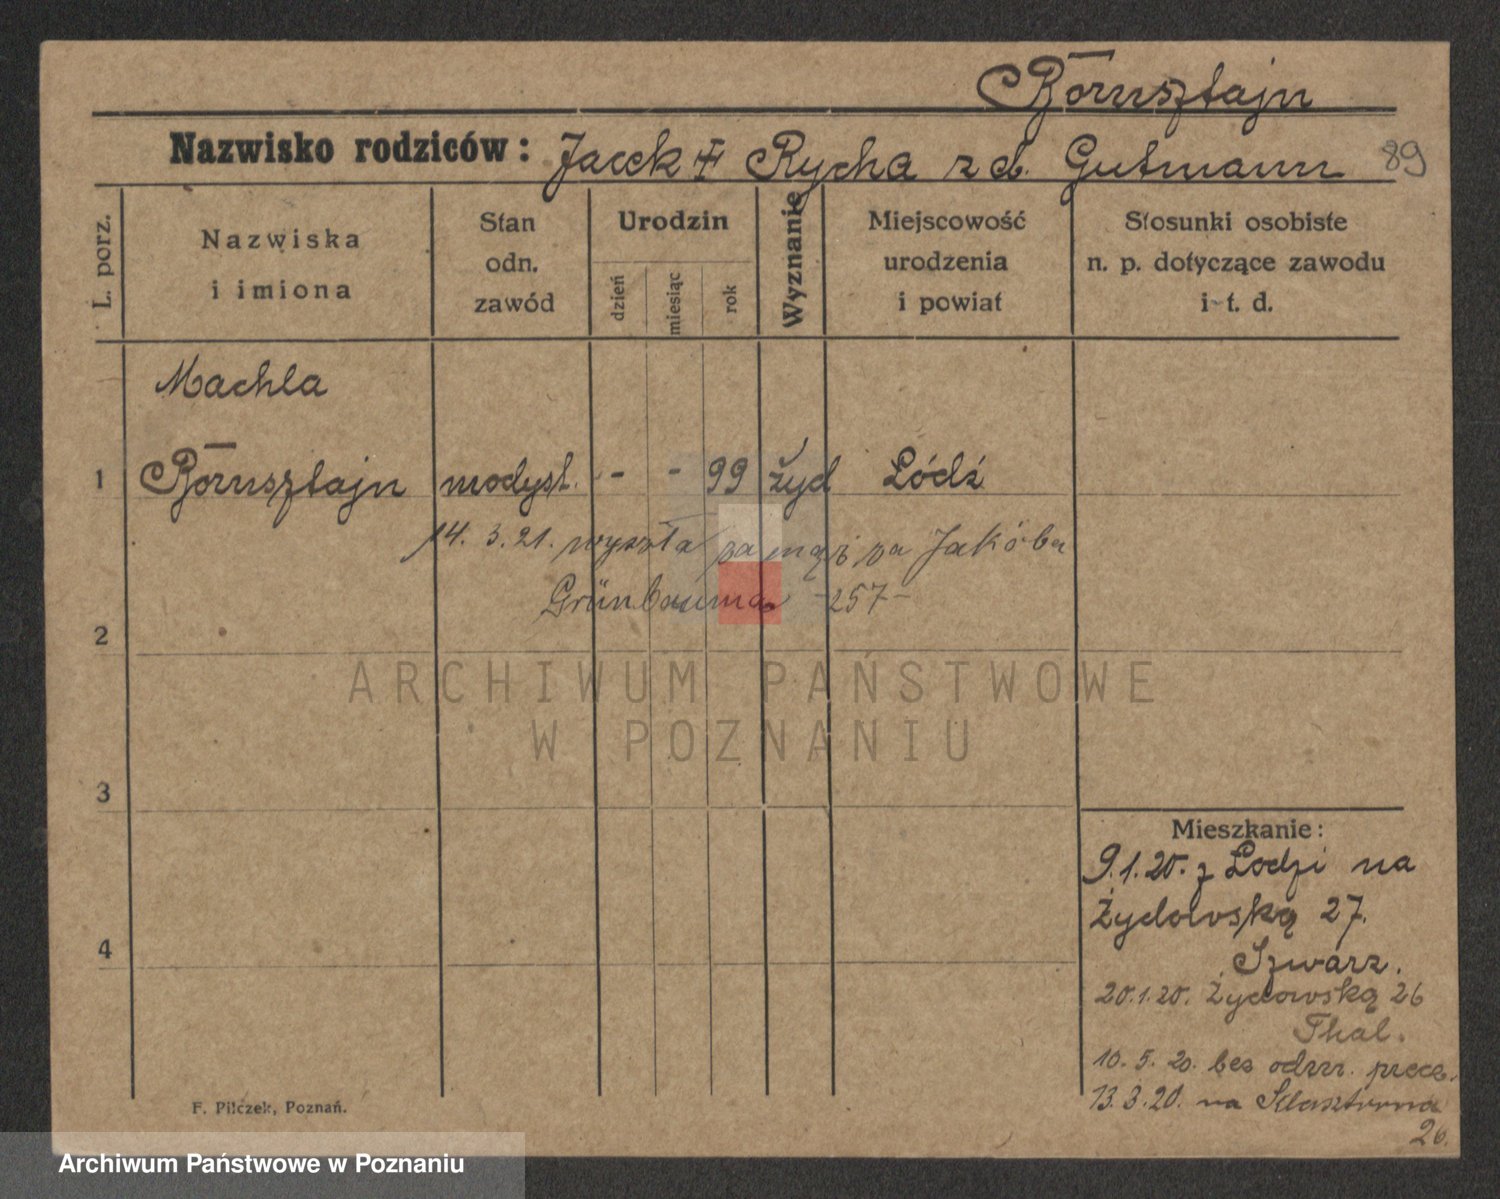 Bornsztajn
Nazwisko rodziców: Jacek ╪ Rycha z d. Gutmann 89
L. porz.
Nazwiska
i imiona
Stan
odn.
zawód
Urodzin
dzień
miesiąc
rok
Wyznanie
Miejscowość
urodzenia
i powiat
Stosunki osobiste
n. p. dotyczące zawodu
i t. d.
Machla
1 Bornsztajn modyst. - - 99 żyd Łódź
14. 3. 21. wyszła za mąż za Jakóba
Grünbauma -257-
2
ARCHIWUM PAŃSTWOWE
W POZNANIU
3
Mieszkanie:
9.1.20. z Łodzi na
Żydowską 27.
Szwarz.
4
20.1.20. Żydowską 26
Thal.
10. 5. 20. bez odzn.
13. 3. 20. na Klasztorna
26.
F. Pilczek, Poznań.
Archiwum Państwowe w Poznaniu